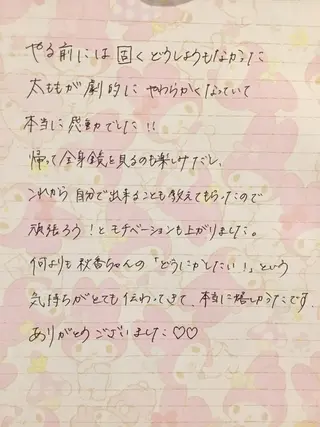 やる前には固くどうしようもなかった
太ももが劇的にやわらかくなっていて
本当に感動でした!!
帰って全身鏡を見るのも楽しみだし、
これから自分で出来ることも教えてもらったので
頑張ろう!とモチベーションも上がりました。
何よりも秋香ちゃんの「どうにかしたい!」という
気持ちがとても伝わってきて、本当に嬉しかったです
ありがとうございました♡♡